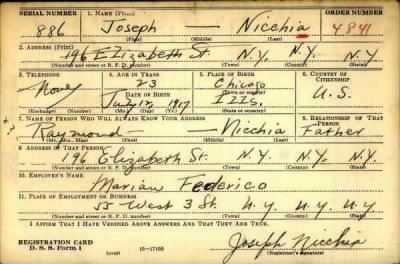 SERIAL NUMBER 1. NAME (Print) ORDER NUMBER
886 Joseph — Nicchia 4841
(First) (Middle) (Last)
2. ADDRESS (Print)
196 Elizabeth St. N.Y. N.Y. N.Y.
(Number and street or R. F. D. number) (Town) (County) (State)
3. TELEPHONE 4. AGE IN YEARS 5. PLACE OF BIRTH 6. COUNTRY OF CITIZENSHIP
None 23 Chicago
DATE OF BIRTH (Town or county)
July 12, 1917 Ills. U.S.
(Exchange) (Number) (Mo.) (Day) (Yr.) (State or country)
7. NAME OF PERSON WHO WILL ALWAYS KNOW YOUR ADDRESS 8. RELATIONSHIP OF THAT PERSON
Raymond — Nicchia Father
(Mr., Mrs., Miss) (First) (Middle) (Last)
9. ADDRESS OF THAT PERSON
196 Elizabeth St. N.Y. N.Y. N.Y.
(Number and street or R. F. D. number) (Town) (County) (State)
10. EMPLOYER'S NAME
Marian Federico
11. PLACE OF EMPLOYMENT OR BUSINESS
55 West 3 St. N.Y. N.Y. N.Y.
(Number and street or R. F. D. number) (Town) (County) (State)
I AFFIRM THAT I HAVE VERIFIED ABOVE ANSWERS AND THAT THEY ARE TRUE.
REGISTRATION CARD
D. S. S. Form 1 (over) 16—17105 Joseph Nicchia
(Registrant's signature)